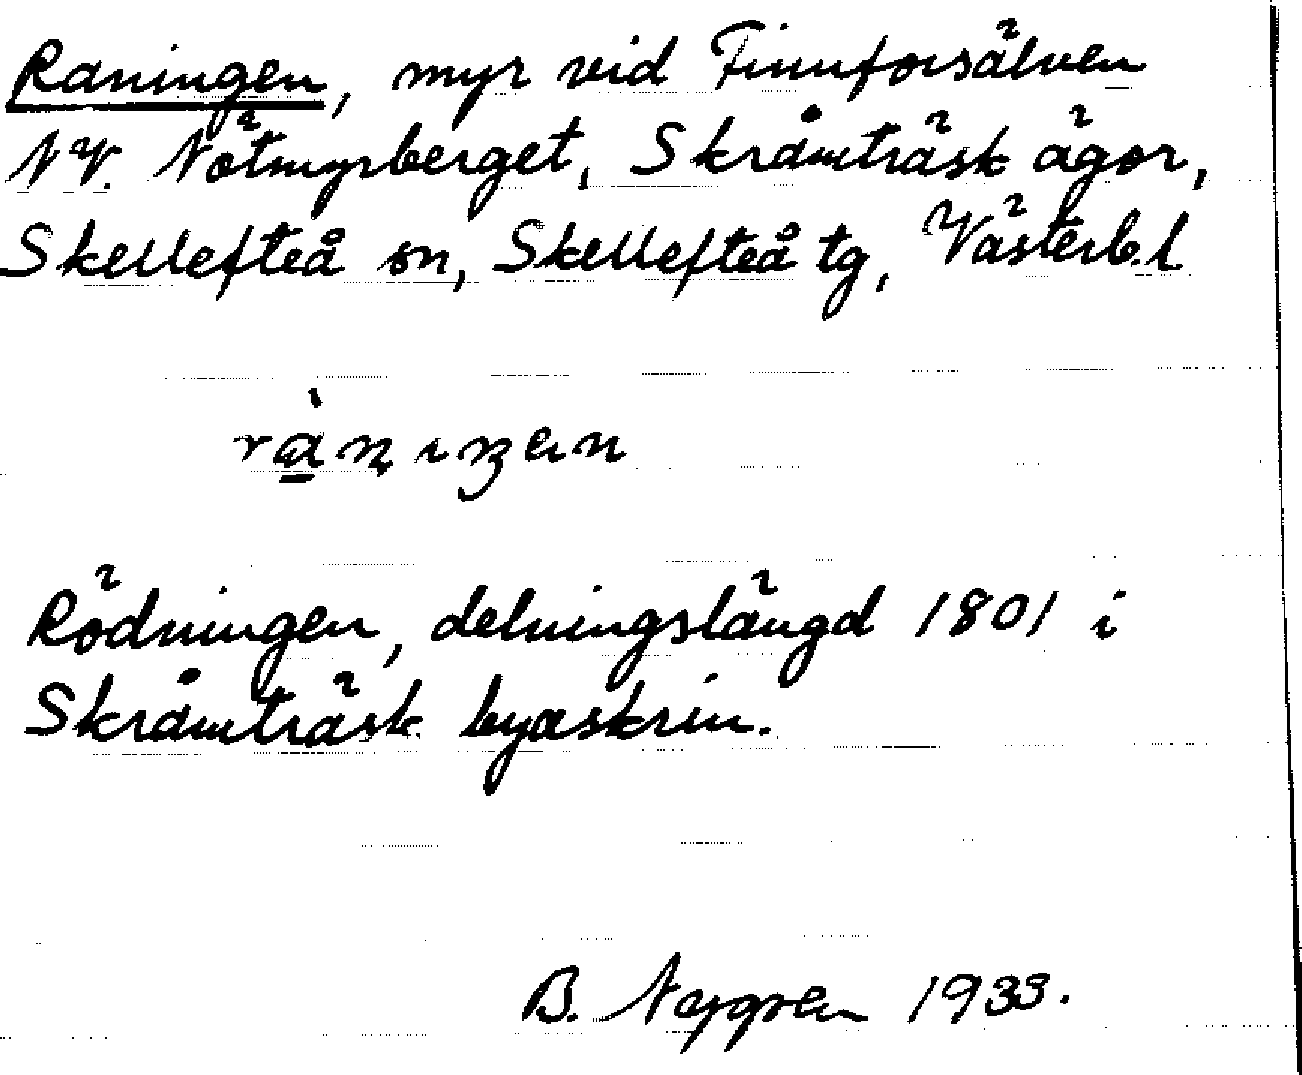 Raningen, myr vid Finnforsälven
NV. Nötmyrberget, Skråmträsk ägor,
Skellefteå sn, Skellefteå tg, Västerb.l
rànıŋen
Rödningen, delningslängd 1801 i
Skråmträsk byaskrin.
B. Nygren 1933.